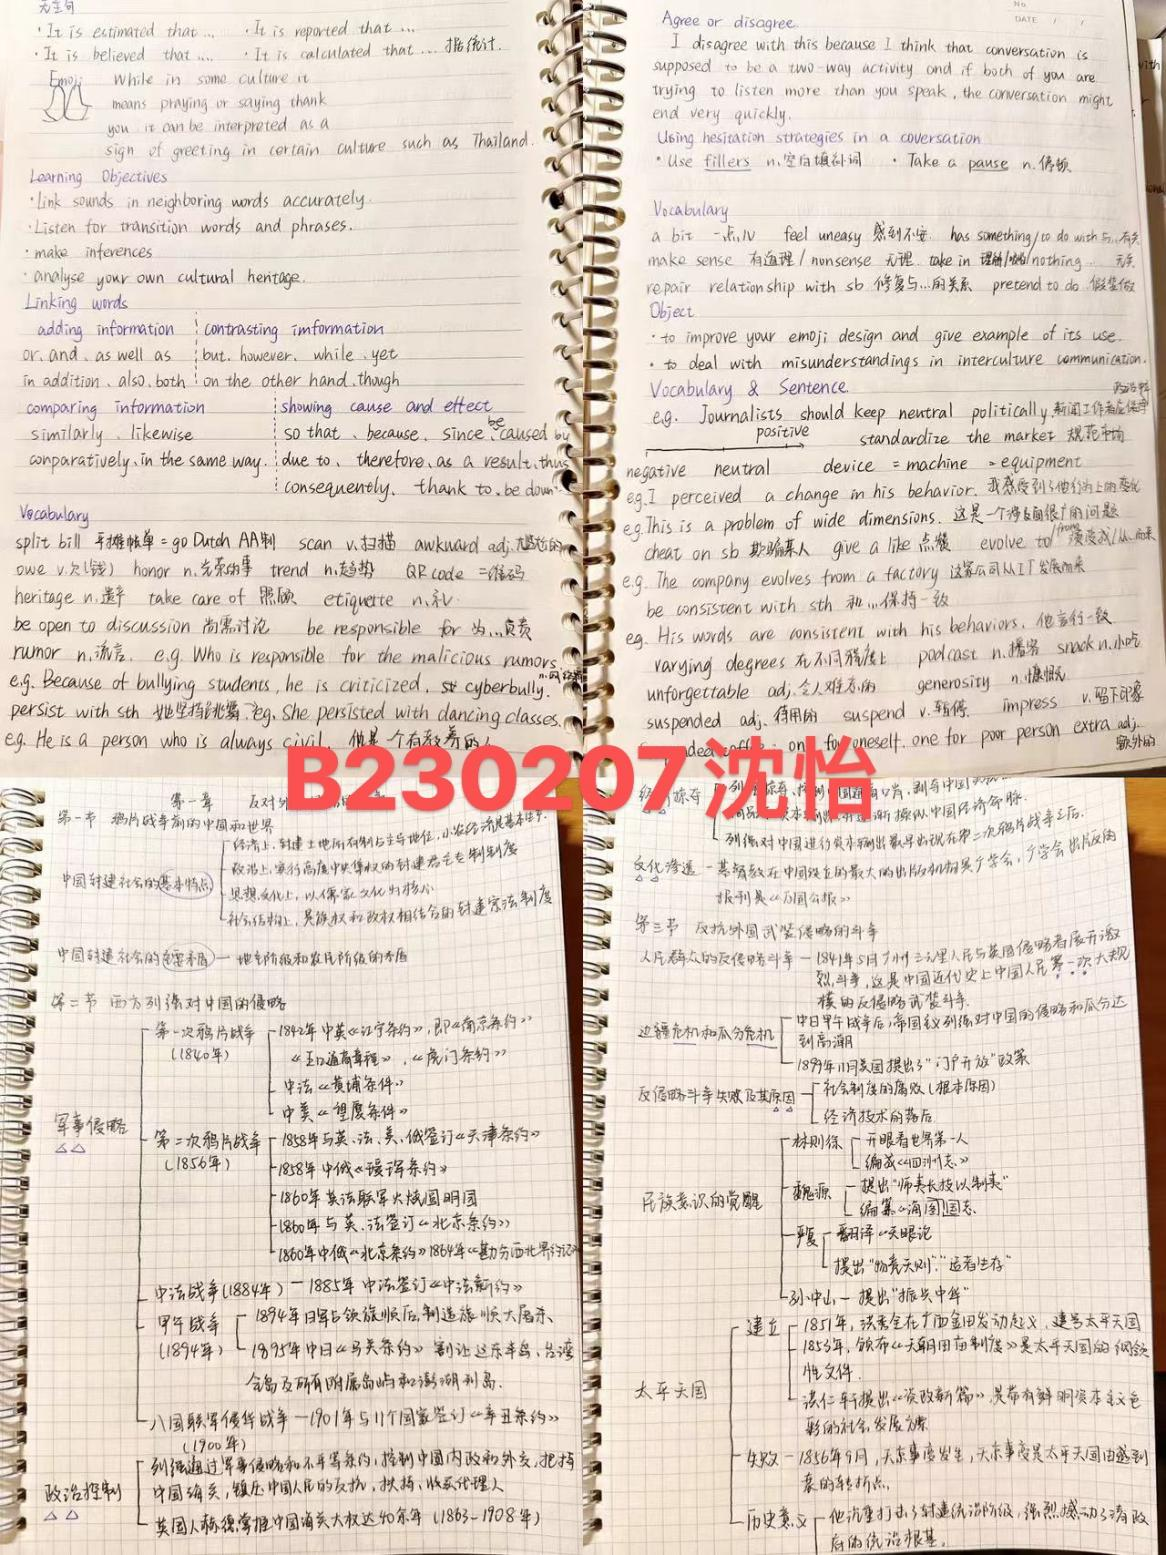 无主句
· It is estimated that ... · It is reported that ...
· It is believed that ... · It is calculated that ... 据统计.
Emoji While in some culture it
means praying or saying thank
you it can be interpreted as a
sign of greeting in certain culture such as Thailand.
Learning Objectives
· Link sounds in neighboring words accurately.
· Listen for transition words and phrases.
· make inferences
· analyse your own cultural heritage.
Linking words
adding information contrasting imformation
or, and, as well as but, however, while, yet
in addition, also, both on the other hand, though
comparing information showing cause and effect
similarly, likewise so that, because, since, be caused by
conparatively, in the same way. due to, therefore, as a result, thus
consequently, thank to, be down
Vocabulary
split bill 平摊帐单 = go Dutch AA制 scan v.扫描 awkward adj.尴尬的
owe v.欠(钱) honor n.光荣的事 trend n.趋势 QR code 二维码
heritage n.遗产 take care of 照顾 etiquette n.礼
be open to discussion 尚需讨论 be responsible for 为...负责
rumor n.流言. e.g. Who is responsible for the malicious rumors.
e.g. Because of bullying students, he is criticized. cyberbully.
persist with sth e.g. She persisted with dancing classes.
e.g. He is a person who is always civil. 他是一个有教养的人
No.
DATE / /
Agree or disagree
I disagree with this because I think that conversation is
supposed to be a two-way activity and if both of you are
trying to listen more than you speak, the conversation might
end very quickly.
Using hesitation strategies in a coversation
· Use fillers n.空白填补词 · Take a pause n.停顿
Vocabulary
a bit 一点儿 feel uneasy 感到不安 has something/to do with 与...有关
make sense 有道理 / nonsense 无理 take in 理解/ nothing... 无关
repair relationship with sb 修复与...的关系 pretend to do 假装做
Object
· to improve your emoji design and give example of its use.
· to deal with misunderstandings in interculture communication.
Vocabulary & Sentence
e.g. Journalists should keep neutral politically. 新闻工作者应保持
positive standardize the market 规范市场
negative neutral device = machine = equipment
e.g. I perceived a change in his behavior. 我感受到了他行为上的变化
e.g. This is a problem of wide dimensions. 这是一个涉及面很广的问题
cheat on sb 欺骗某人 give a like 点赞 evolve to/from
e.g. The company evolves from a factory 这家公司从工厂发展而来
be consistent with sth 和...保持一致
eg. His words are consistent with his behaviors. 他言行一致
varying degrees 在不同程度上 podcast n.播客 snack n.小吃
unforgettable adj.令人难忘的 generosity n.慷慨
suspended adj.待用的 suspend v.暂停 impress v.留下印象
one for oneself, one for poor person extra adj.额外的
B230207沈怡
第一章 反对外
第一节 鸦片战争前的中国和世界
中国封建社会的基本特点
经济上,封建土地所有制占主导地位,小农经济是基本生产
政治上,实行高度中央集权的封建君主专制制度
思想文化上,以儒家文化为核心
社会结构上,是族权和政权相结合的封建宗法制度
中国封建社会的主要矛盾 — 地主阶级和农民阶级的矛盾
第二节 西方列强对中国的侵略
军事侵略
第一次鸦片战争 1842年中英《江宁条约》,即《南京条约》
(1840年) 《五口通商章程》,《虎门条约》
中法《黄埔条件》
中美《望厦条件》
第二次鸦片战争 1858年与英、法、美、俄签订《天津条约》
(1856年) 1858年中俄《瑷珲条约》
1860年英法联军火烧圆明园
1860年与英、法签订《北京条约》
1860年中俄《北京条约》1864年《勘分西北界约记》
中法战争(1884年) — 1885年中法签订《中法新约》
甲午战争 1894年日军占领旅顺后,制造旅顺大屠杀
(1894年) 1895年中日《马关条约》割让辽东半岛、台湾
全岛及所有附属岛屿和澎湖列岛.
八国联军侵华战争 — 1901年与11个国家签订《辛丑条约》
(1900年)
政治控制
列强通过军事侵略和不平等条约,控制中国内政和外交,把持
中国海关,镇压中国人民的反抗,扶持、收买代理人
英国人赫德掌握中国海关大权达40余年(1863-1908年)
列强对中国进行资本输出最早出现在第二次鸦片战争之后.
文化渗透 — 基督教在中国设立的最大的出版机构是广学会,广学会出版的
报刊是《万国公报》
第三节 反抗外国武装侵略的斗争
人民群众的反侵略斗争 — 1841年5月广州三元里人民与英国侵略者展开激
烈斗争,这是中国近代史上中国人民第一次大规
模的反侵略武装斗争.
边疆危机和瓜分危机 中日甲午战争后,帝国主义列强对中国的侵略和瓜分达
到高潮
1899年11月美国提出了"门户开放"政策
反侵略斗争失败及其原因 社会制度的腐败(根本原因)
经济技术的落后
民族意识的觉醒
林则徐 开眼看世界第一人
编成《四洲志》
魏源 提出"师夷长技以制夷"
编纂《海国图志》
严复 翻译《天眼论
提出"物竞天则","适者生存"
孙中山 — 提出"振兴中华"
太平天国
建立 1851年,洪秀全在广西金田发动起义,建号太平天国
1853年,颁布《天朝田亩制度》是太平天国的纲领
性文件.
洪仁玕提出《资政新篇》,是带有鲜明资本主义色
彩的社会发展方案
失败 — 1856年9月,天京事变发生,天京事变是太平天国由盛到
衰的转折点.
历史意义 他沉重打击了封建统治阶级,强烈撼动了清政
府的统治根基.